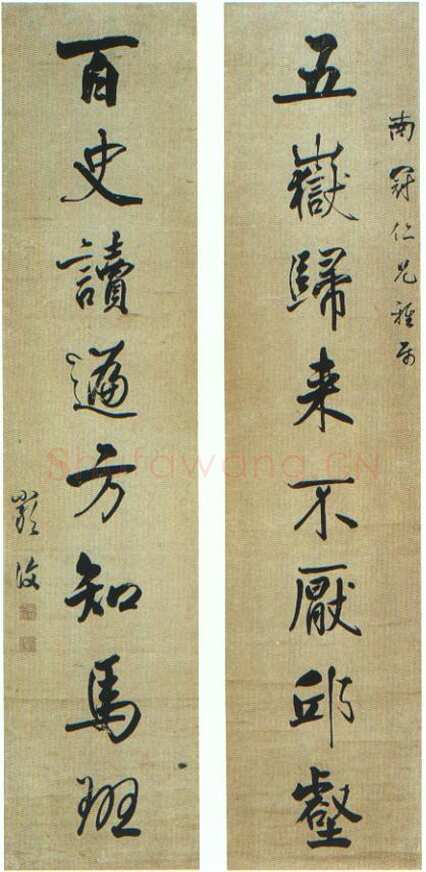 南仁兄雅属
五嶽歸来不厭邱壑
百史讀遍方知馬班
Shufawang.CN